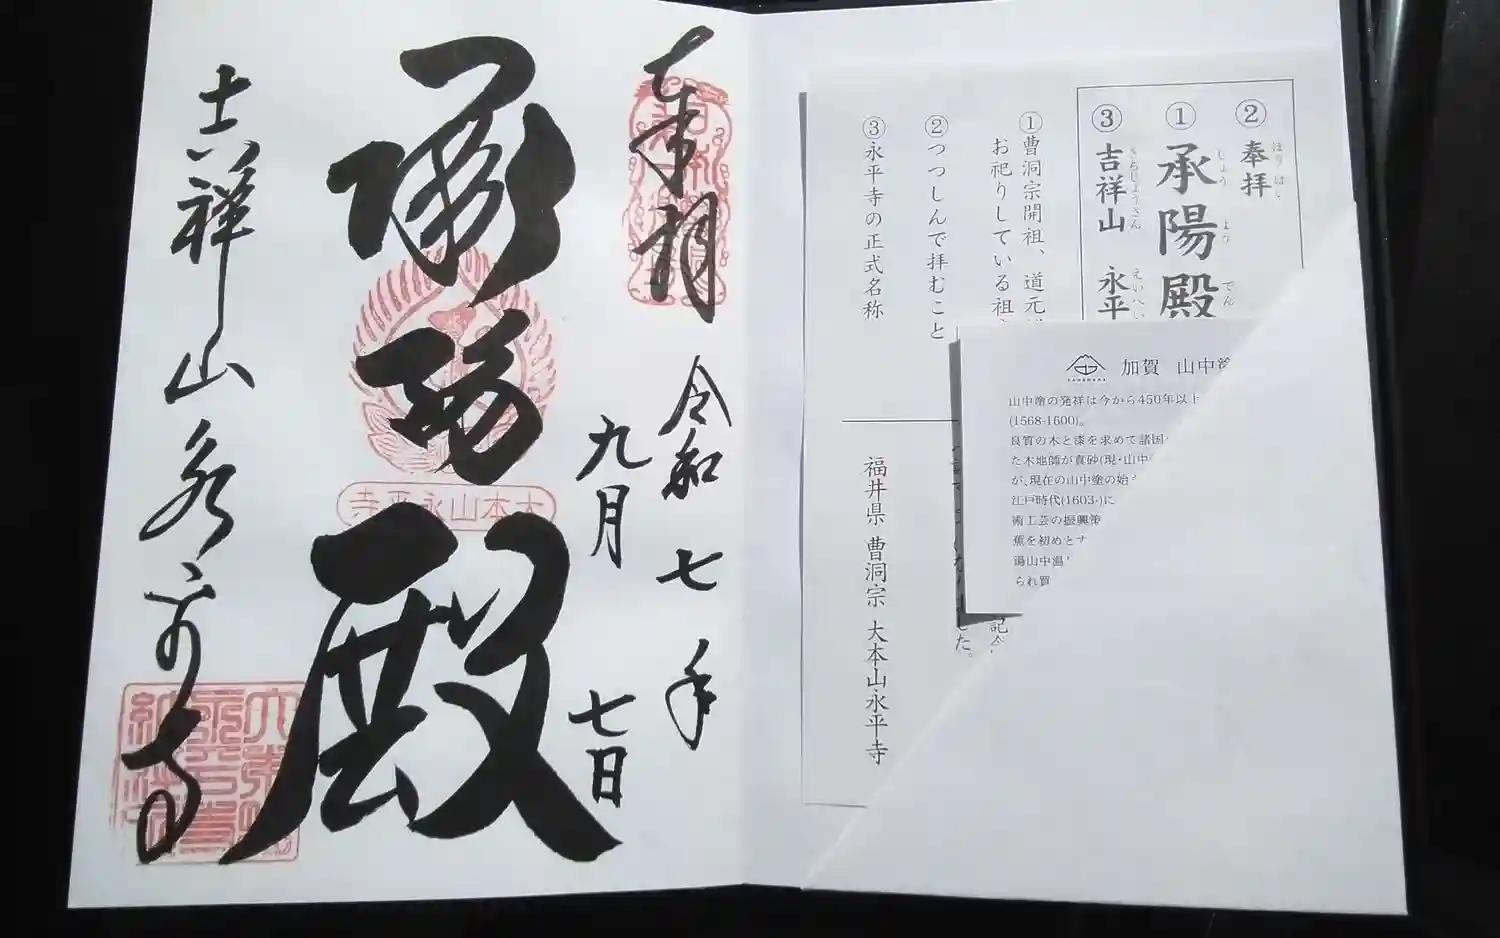 奉拝
令和七年
九月七日
承陽殿
吉祥山永平寺
大本山永平寺
② 奉拝
ほうはい
① 承陽殿
じょうようでん
③ 吉祥山 永平
きちじょうさん えいへい
①曹洞宗開祖、道元
お祀りしている祖
②つつしんで拝むこと
③永平寺の正式名称
福井県 曹洞宗 大本山永平寺
記念
た。
加賀 山中塗
山中塗の発祥は今から450年以上
(1568-1600)。
良質の木と漆を求めて諸国
た木地師が真砂(現・山中
が、現在の山中塗の始
江戸時代(1603-)に
術工芸の振興策
蕉を初めとす
湯山中温
られ買